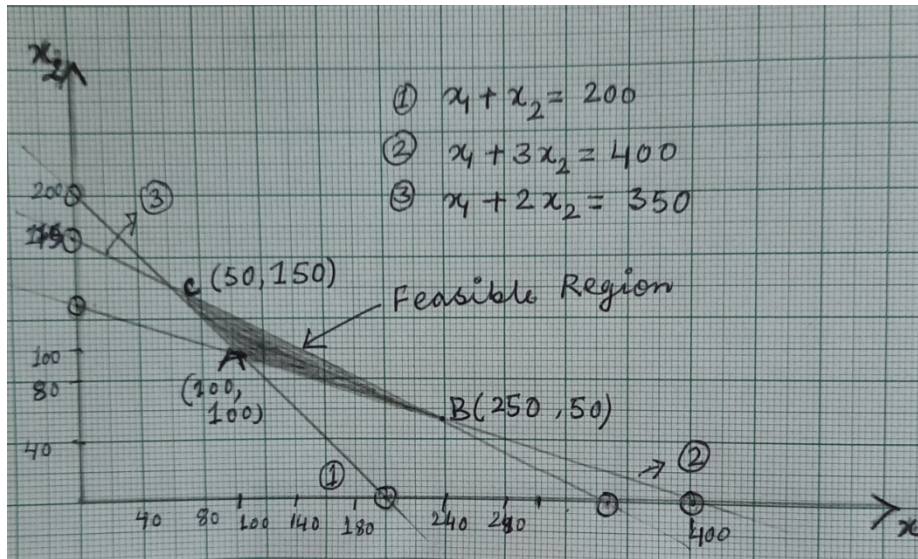 x₂
① x₁ + x₂ = 200
② x₁ + 3x₂ = 400
③ x₁ + 2x₂ = 350
200
③
175
C (50,150)
Feasible Region
100
A
80
(100,
100)
B(250,50)
40
①
②
40 80 100 140 180 240 280
400
x